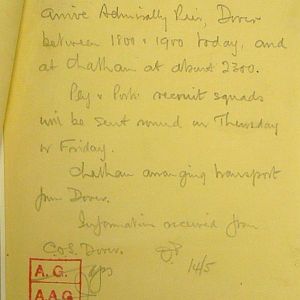 arrive Admiralty Pier, Dover
between 1800 & 1900 today, and
at Chatham at about 2300.
Pay & recruit squads
will be sent round on Thursday
or Friday.
Chatham arranging transport
from Dover.
Information received from
C.O.S. Dover.
14/5
A.G.
A.A.G.